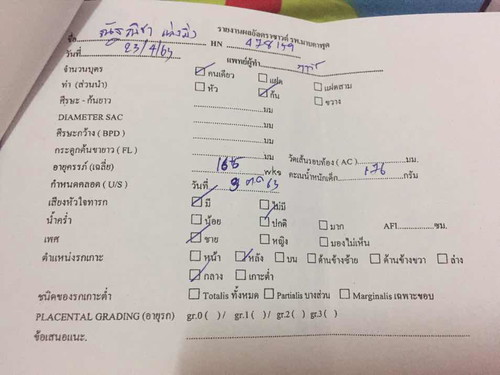 รายงานผลอัลตราซาวด์ รพ.มาบตาพุด
ชื่อ HN
วันที่ 23/4/63 แพทย์ผู้ทำ
จำนวนบุตร คนเดียว แฝด แฝดสาม
ท่า (ส่วนนำ) หัว ก้น ขวาง
ศีรษะ - ก้นยาว มม
DIAMETER SAC มม
ศีรษะกว้าง ( BPD ) มม
กระดูกต้นขายาว ( FL ) มม วัดเส้นรอบท้อง ( AC ) มม.
อายุครรภ์ (เฉลี่ย) wks คะเนน้ำหนักเด็ก 176 กรัม
กำหนดคลอด ( U/S ) วันที่ 9 ต.ค 63
เสียงหัวใจทารก มี ไม่มี
น้ำคร่ำ น้อย ปกติ มาก AFI ซม.
เพศ ชาย หญิง มองไม่เห็น
ตำแหน่งรกเกาะ หน้า หลัง บน ด้านข้างซ้าย ด้านข้างขวา ล่าง
กลาง เกาะต่ำ
ชนิดของรกเกาะต่ำ Totalis ทั้งหมด Partialis บางส่วน Marginalis เฉพาะขอบ
PLACENTAL GRADING (อายุรก) gr.0 ( )/ gr.1 ( )/ gr.2 ( ) gr.3 ( )
ข้อเสนอแนะ.